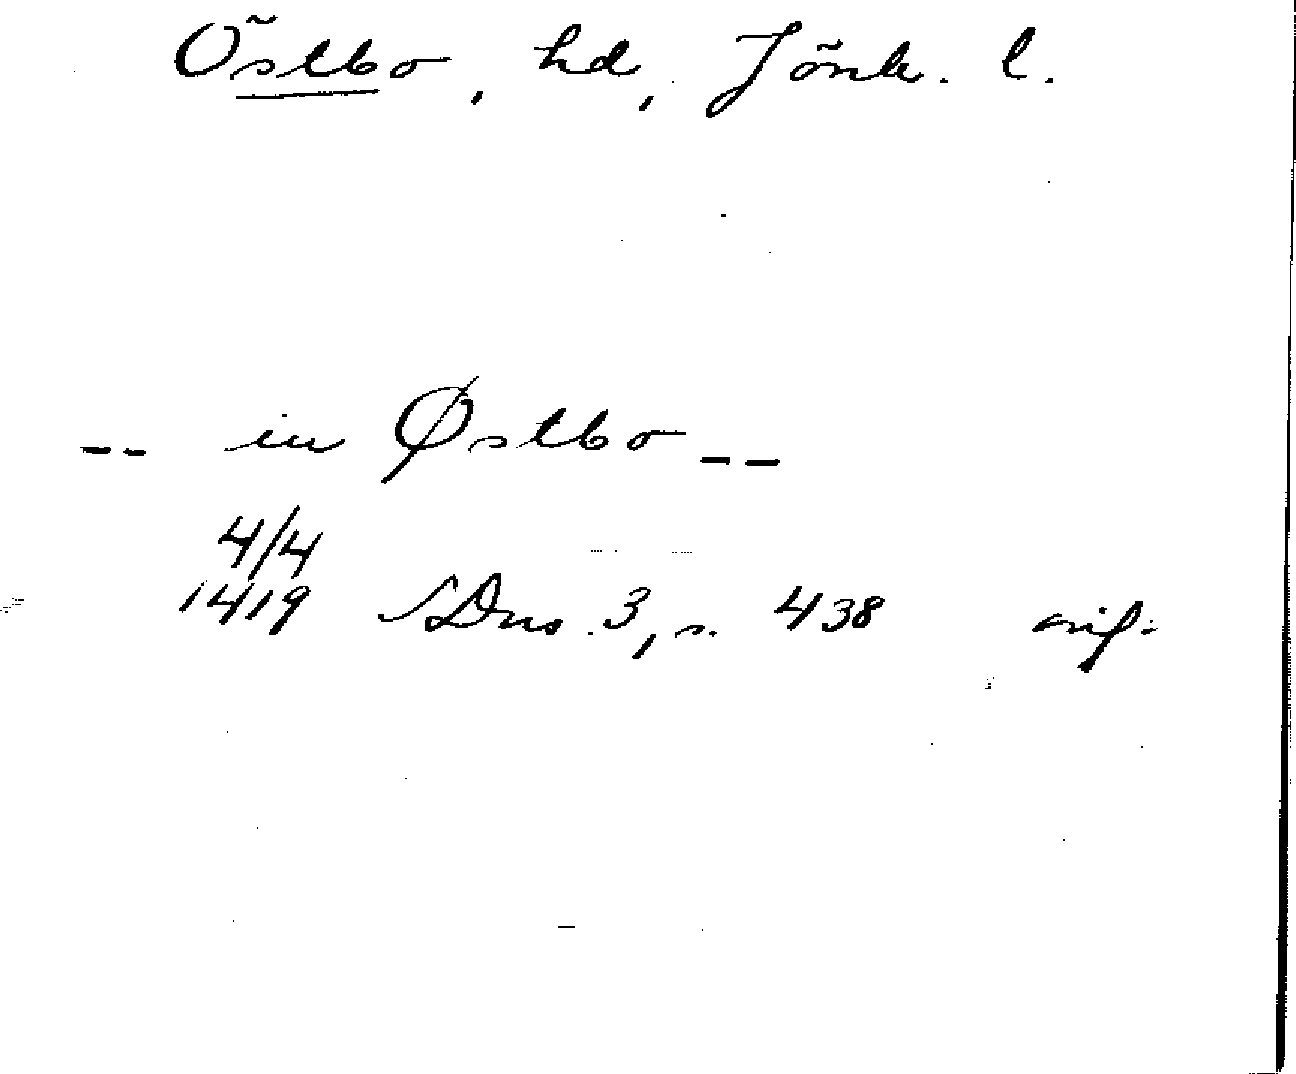 Östbo, hd, Jönk. l.
-- in Østbo --
4/4
1419 SDns. 3, s. 438 orig.